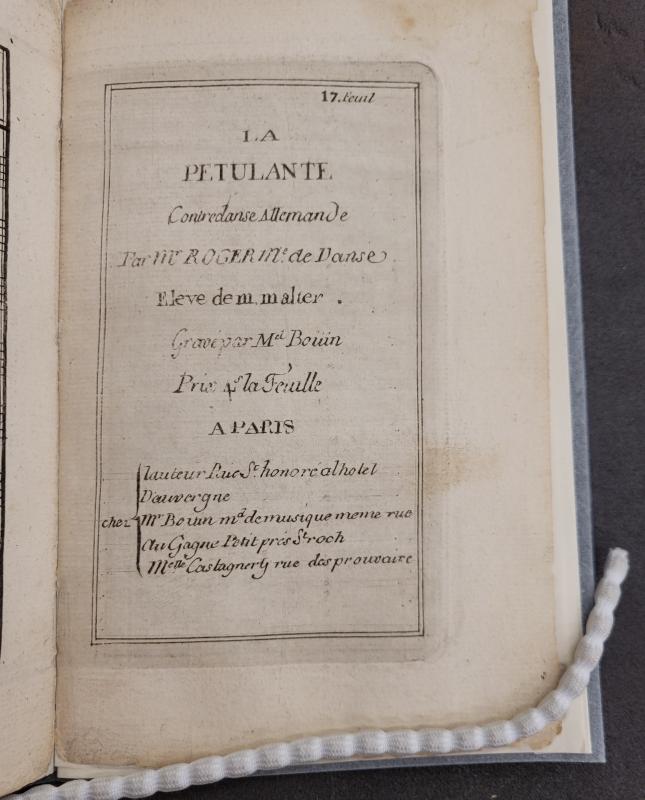 17. feuil
LA
PETULANTE
Contredanse Allemande
Par Mr ROGER Me. de Danse
Eleve de m. malter .
Gravé par Mel Bouin
Prix 4s la Feuille
A PARIS
lauteur Rue St. honoré a lhotel
D'auvergne
chez Mr Bouin md. de musique meme rue
Au Gagne Petit pres St roch
Melle Castagnery rue des prouvaire